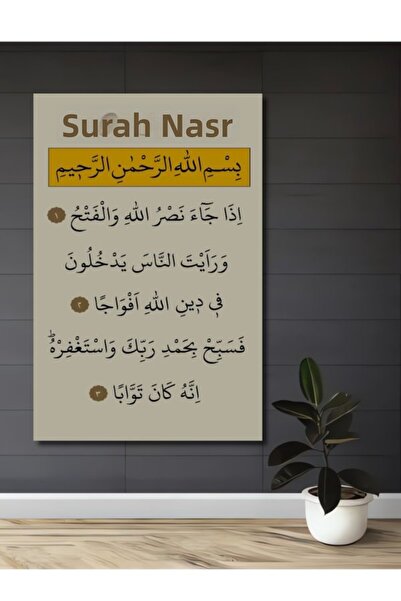 Surah Nasr
بِسْمِ اللهِ الرَّحْمٰنِ الرَّحٖيمِ
اِذَا جَٓاءَ نَصْرُ اللهِ وَالْفَتْحُ ١
وَرَاَيْتَ النَّاسَ يَدْخُلُونَ
فٖي دٖينِ اللهِ اَفْوَاجًا ٢
فَسَبِّحْ بِحَمْدِ رَبِّكَ وَاسْتَغْفِرْهُؕ
اِنَّهُ كَانَ تَوَّابًا ٣